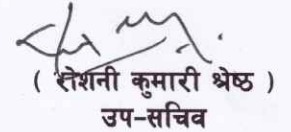 ( रोशनी कुमारी श्रेष्ठ )
उप-सचिव